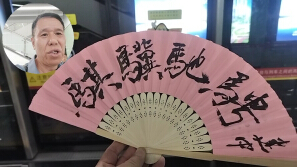 騏驥馳騁